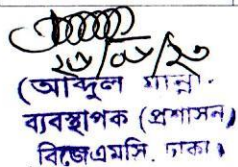 ২৮/০৮/২৩
(আব্দুল গান্নী.
ব্যবস্থাপক (প্রশাসন)
বিজেএমসি. ঢাকা।